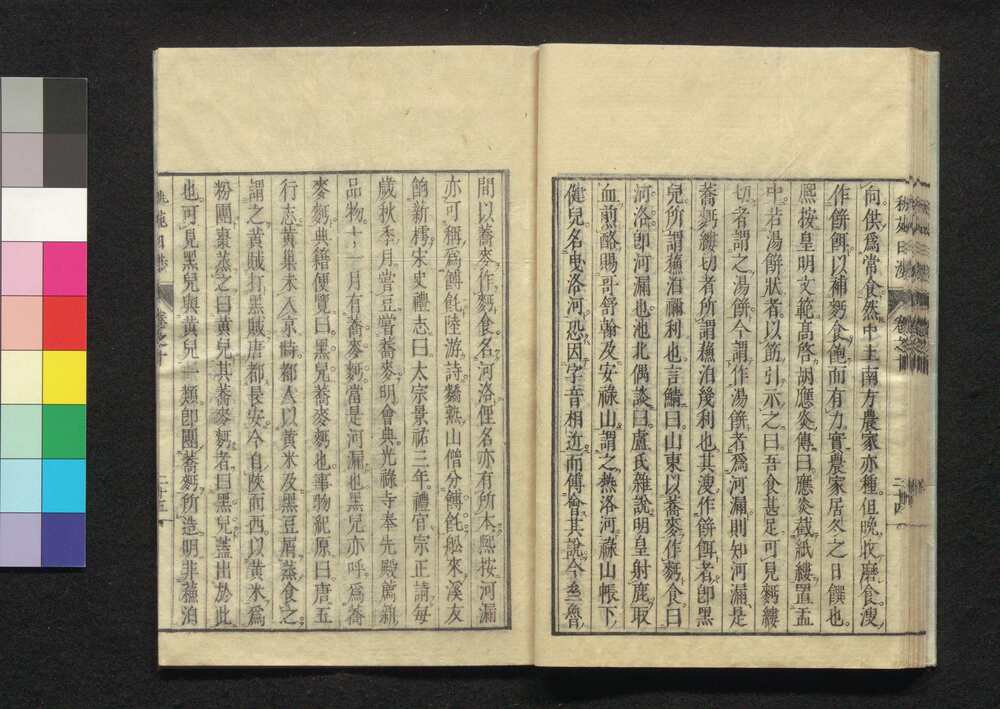 秇苑日渉 卷之十 二十四
向供爲常食然中土南方農家亦種但晩收磨食溲
作餅餌以補麪食飽而有力實農家居冬之日饌也
熈按皇明文範高啓胡應炎傳曰應炎截紙縷置盂
中若湯餅狀者以筯引示之曰吾食甚足可見麪縷
切者謂之湯餅今謂作湯餅者爲河漏則知河漏是
蕎麪縷切者所謂蕪泊幾利也其溲作餅餌者卽黑
兒所謂蕪泊爾利也言鯖曰山東以蕎麥作麪食曰
河洛卽河漏也池北偶談曰盧氏雜說明皇射鹿取
血煎酪賜哥舒翰及安祿山謂之熱洛河祿山帳下
健兒名曳洛河恐因字音相近而傅會其說今亝魯
間以蕎麥作麪食名河洛俚名亦有所本熈按河漏
亦可稱爲餺飥陸游詩鬻熟山僧分餺飥船來溪友
餉新樗宋史禮志曰太宗景祐三年禮官宗正請每
歳秋季月嘗豆嘗蕎麥明會典光祿寺奉先殿薦新
品物十一月有蕎麥麪當是河漏也黑兒亦呼爲蕎
麥麪典籍便覽曰黑兒蕎麥麪也事物紀原曰唐五
行志黃巢未入京時都人以黃米及黑豆屑蒸食之
謂之黃賊打黑賊唐都長安今自陝而西以黃米爲
粉團棗蒸之曰黃兒其蕎麥麪者曰黑兒蓋出於此
也可見黑兒與黃兒一類卽團蕎麪所造明非蕪泊